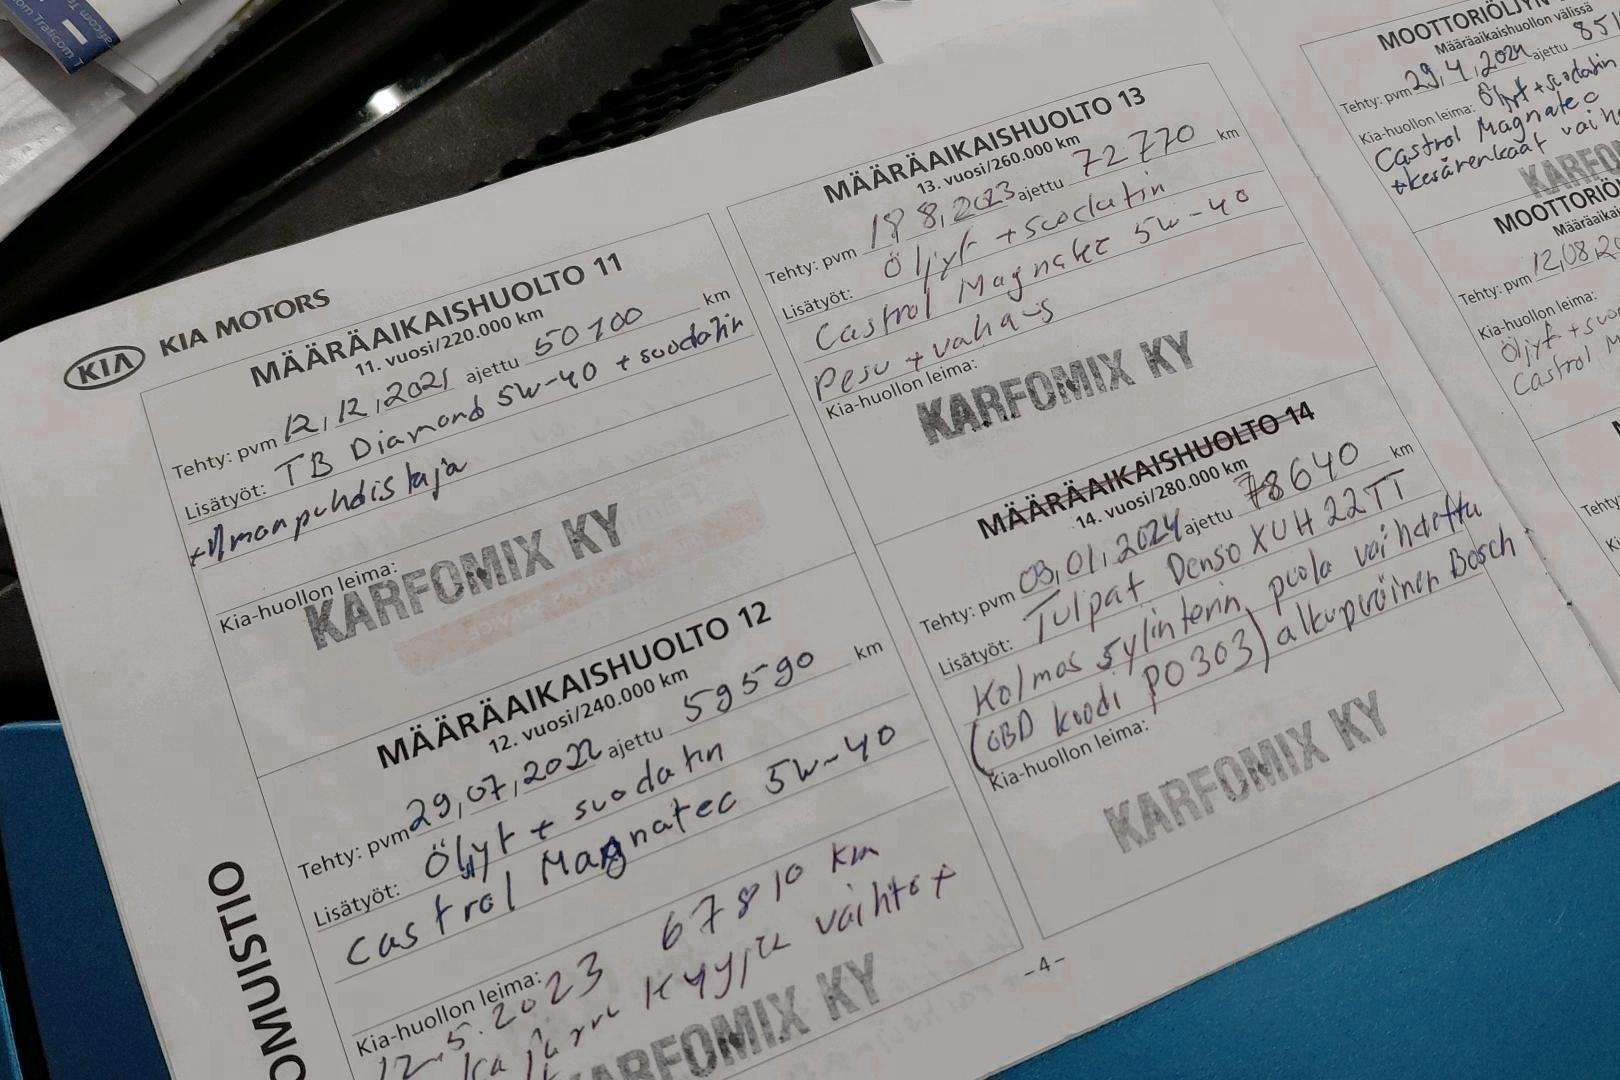 KIA KIA MOTORS
MÄÄRÄAIKAISHUOLTO 11
11. vuosi/220.000 km
Tehty: pvm 12,12,2021 ajettu 50100 km
Lisätyöt: TB Diamond 5w-40 + suodatin
+ilmanpuhdistaja
Kia-huollon leima:
KARFOMIX KY
MÄÄRÄAIKAISHUOLTO 12
12. vuosi/240.000 km
Tehty: pvm 29,07,2022 ajettu 59590 km
Lisätyöt: Öljyt + suodatin
Castrol Magnatec 5w-40
Kia-huollon leima:
12.5.2023 67810 km
vaihtot
KARFOMIX KY
OMUISTIO
MÄÄRÄAIKAISHUOLTO 13
13. vuosi/260.000 km
Tehty: pvm 18 8,2023 ajettu 72770 km
Lisätyöt: Öljyt + suodatin
Castrol Magnatec 5w-40
Pesu + vahaus
Kia-huollon leima:
KARFOMIX KY
MÄÄRÄAIKAISHUOLTO 14
14. vuosi/280.000 km
Tehty: pvm 03,01,2024 ajettu 78640 km
Lisätyöt: Tulpat Denso XUH 22TT
Kolmas sylinterin puola vaihdettu
(OBD koodi P0303) alkuperäinen Bosch
Kia-huollon leima:
KARFOMIX KY
-4-
MOOTTORIÖLJYN
Määräaikaishuollon välissä
Tehty: pvm 29,4,2024 ajettu 851
Kia-huollon leima: Öljyt + suodatin
Castrol Magnatec
+kesärenkaat vaih
KARFOM
MOOTTORIÖL
Määräaikais
Tehty: pvm 12,08,20
Kia-huollon leima:
Öljyt + suo
Castrol M
Tehty: